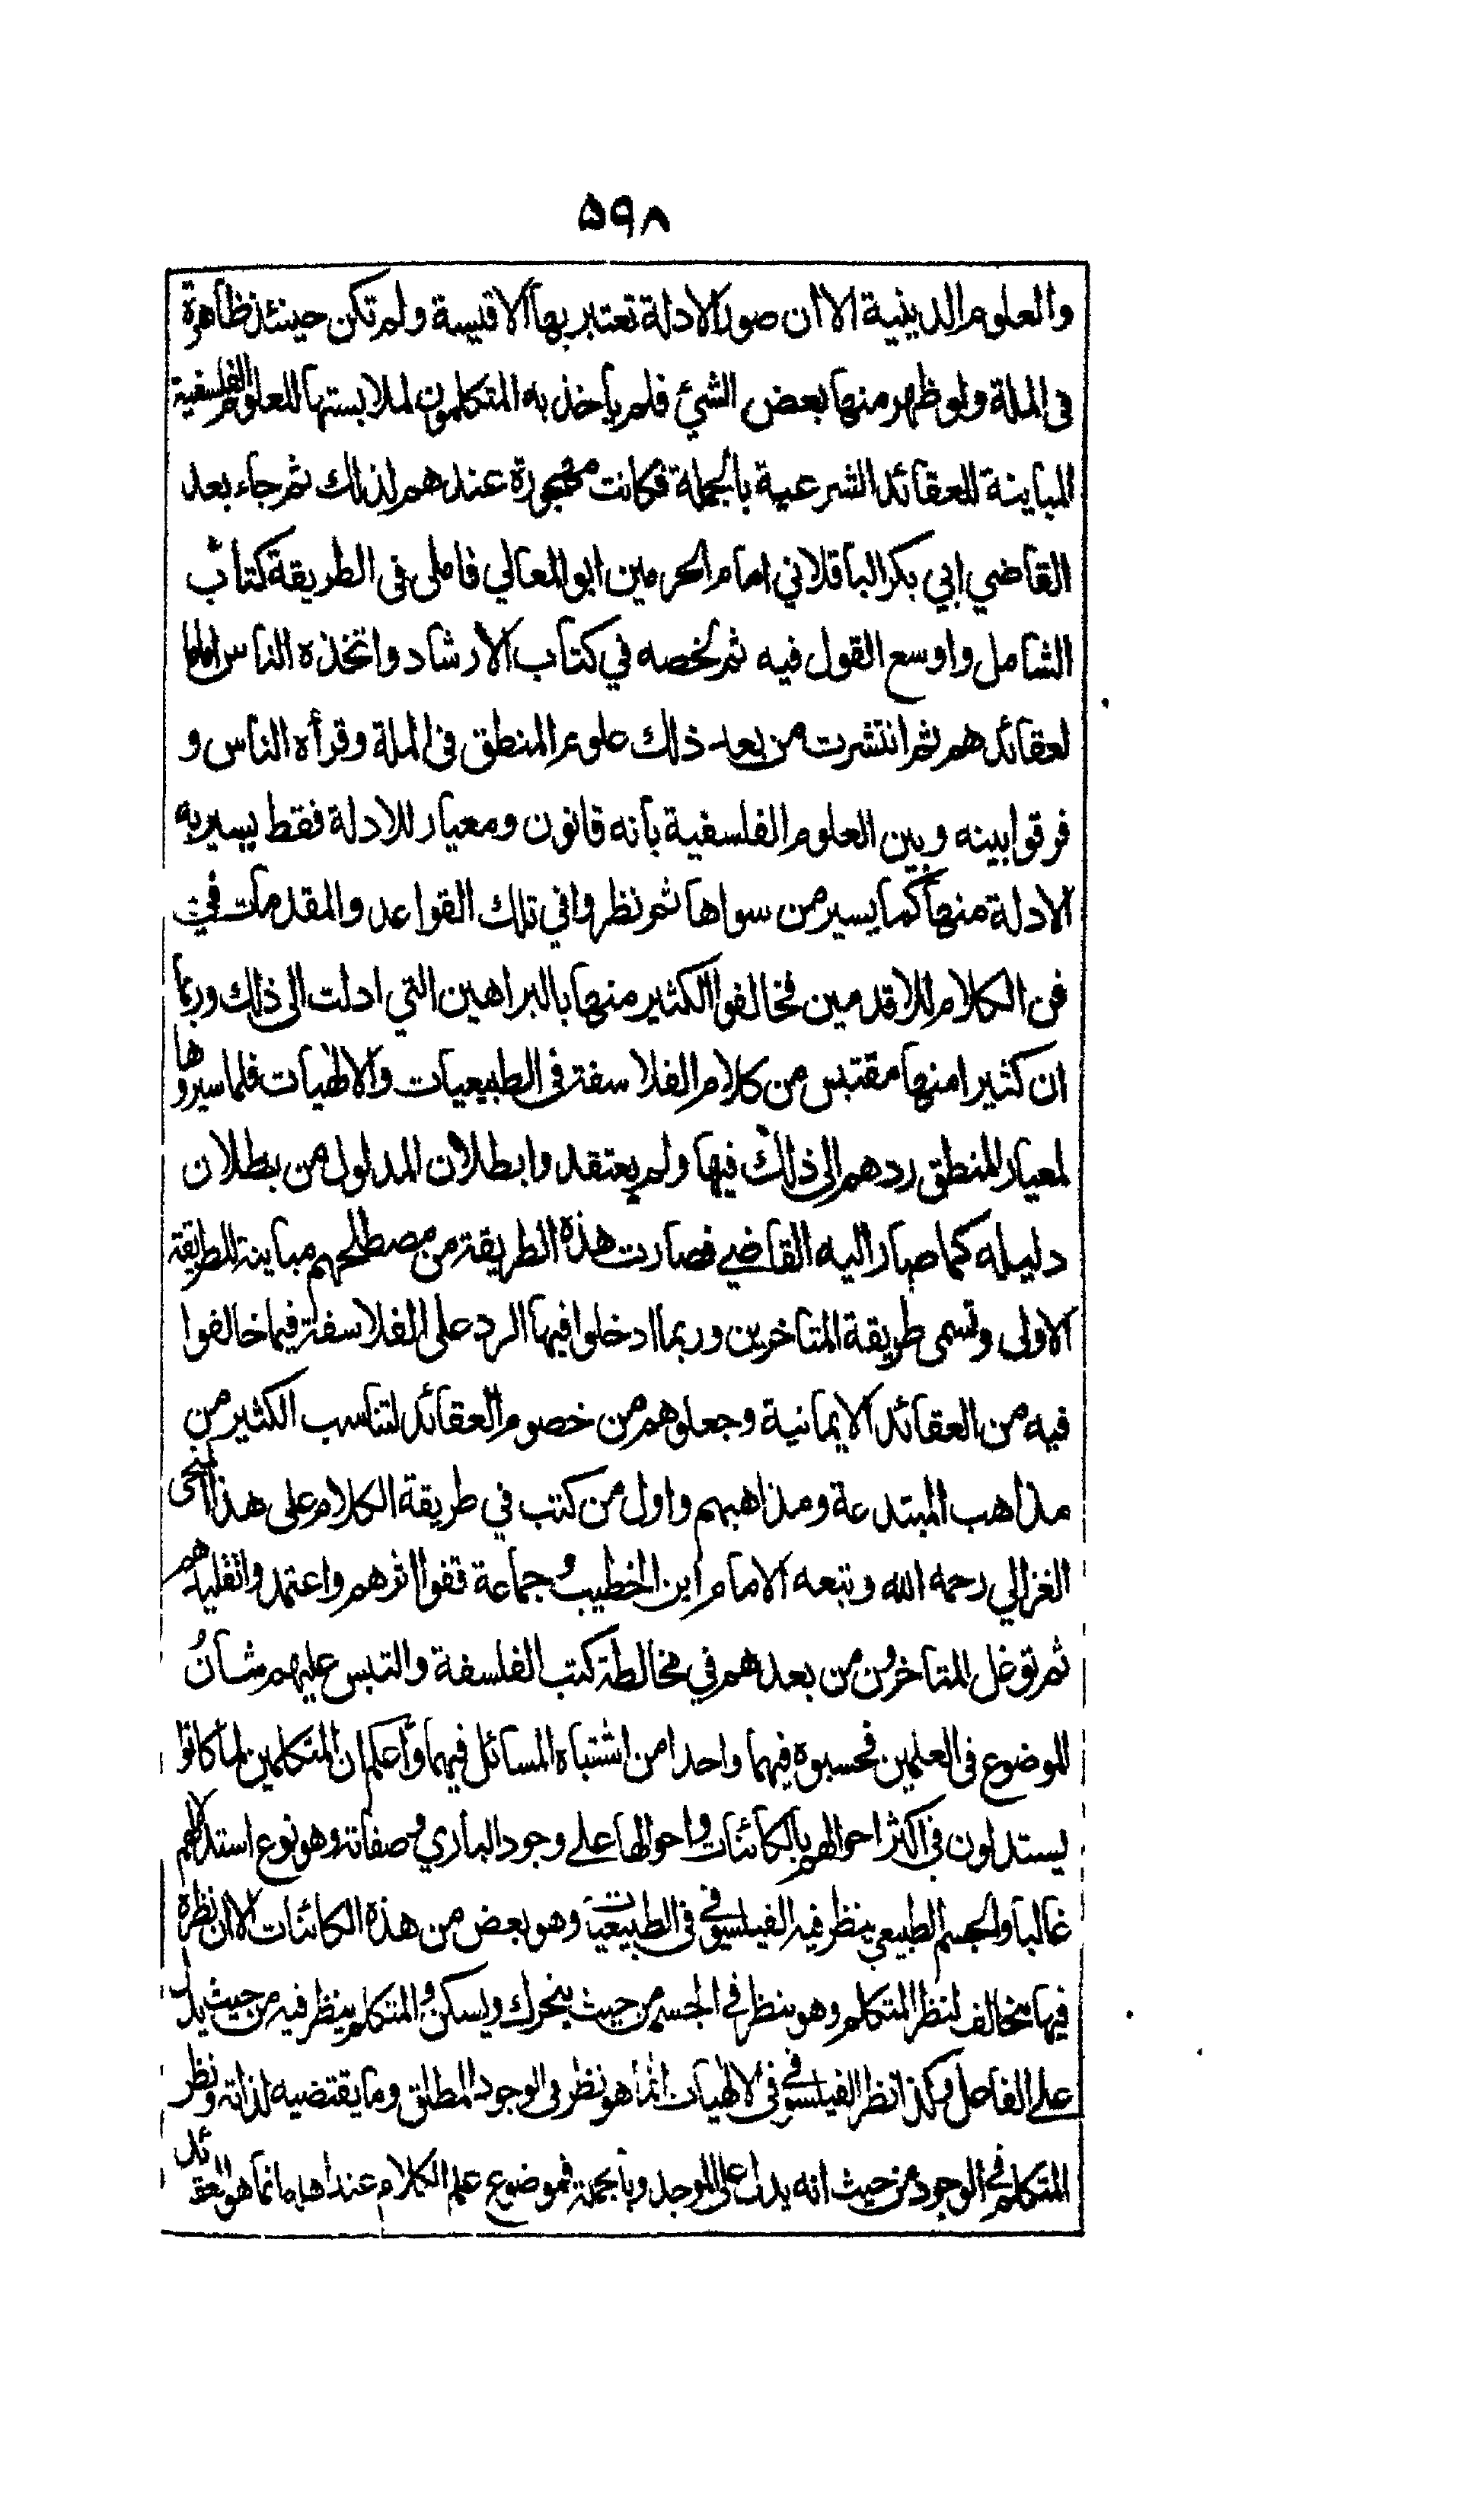 ۵۹۸
والعلوم الدينية الا ان صور الادلة تعتبر بها الاقيسة ولم تكن حينئذ ظاهرة
فى الملة ولو ظهر منها بعض الشئ فلم ياخذ به المتكلمون لملابستها للعلوم الفلسفية
المباينة للعقائد الشرعية بالجملة فكانت مهجورة عندهم لذلك ثم جاء بعد
القاضي ابي بكر الباقلاني امام الحرمين ابو المعالي فاملى فى الطريقة كتاب
الشامل واوسع القول فيه ثم لخصه في كتاب الارشاد واتخذه الناس اماما
لعقائدهم ثم انتشرت من بعد ذلك علوم المنطق فى الملة وقرأه الناس و
فرقوا بينه وبين العلوم الفلسفية بانه قانون ومعيار للادلة فقط يسير به
الادلة منها كما يسير من سواها ثم نظروا في تلك القواعد والمقدمات في
فن الكلام للاقدمين فخالفوا الكثير منها بالبراهين التي ادلت الى ذلك وربما
ان كثيرا منها مقتبس من كلام الفلاسفة فى الطبيعيات والالهيات فلما سيروها
لمعيار المنطق ردهم الى ذلك فيها ولم يعتقدوا بطلان المدلول من بطلان
دليله كما صار اليه القاضي فصارت هذه الطريقة من مصطلحهم مباينة للطريقة
الاولى وتسمى طريقة المتاخرين وربما ادخلوا فيها الرد على الفلاسفة فيما خالفوا
فيه من العقائد الايمانية وجعلوهم من خصوم العقائد لتناسب الكثير من
مذاهب المبتدعة ومذاهبهم واول من كتب في طريقة الكلام على هذا المنحى
الغزالي رحمه الله وتبعه الامام ابن الخطيب وجماعة قفوا اثرهم واعتمدوا تقليدهم
ثم توغل المتاخرون من بعدهم في مخالطة كتب الفلسفة والتبس عليهم شان
الموضوع فى العلمين فحسبوه فيهما واحدا من اشتباه المسائل فيهما واعلم ان المتكلمين لما كانوا
يستدلون في اكثر احوالهم بالكائنات واحوالها على وجود الباري وصفاته وهو نوع استدلالهم
غالبا والجسم الطبيعي ينظر فيه الفيلسوفي فى الطبيعيات وهو بعض من هذه الكائنات الا ان نظره
فيها مخالف لنظر المتكلم وهو ينظر في الجسم من حيث يتحرك ويسكن والمتكلم ينظر فيه من حيث يدل
على الفاعل وكذا نظر الفيلسوفي فى الالهيات انما هو نظر فى الوجود المطلق وما يقتضيه لذاته ونظر
المتكلم في الوجود من حيث انه يدل على الموجد وبالجملة فموضوع علم الكلام عند اهله انما هو العقائد